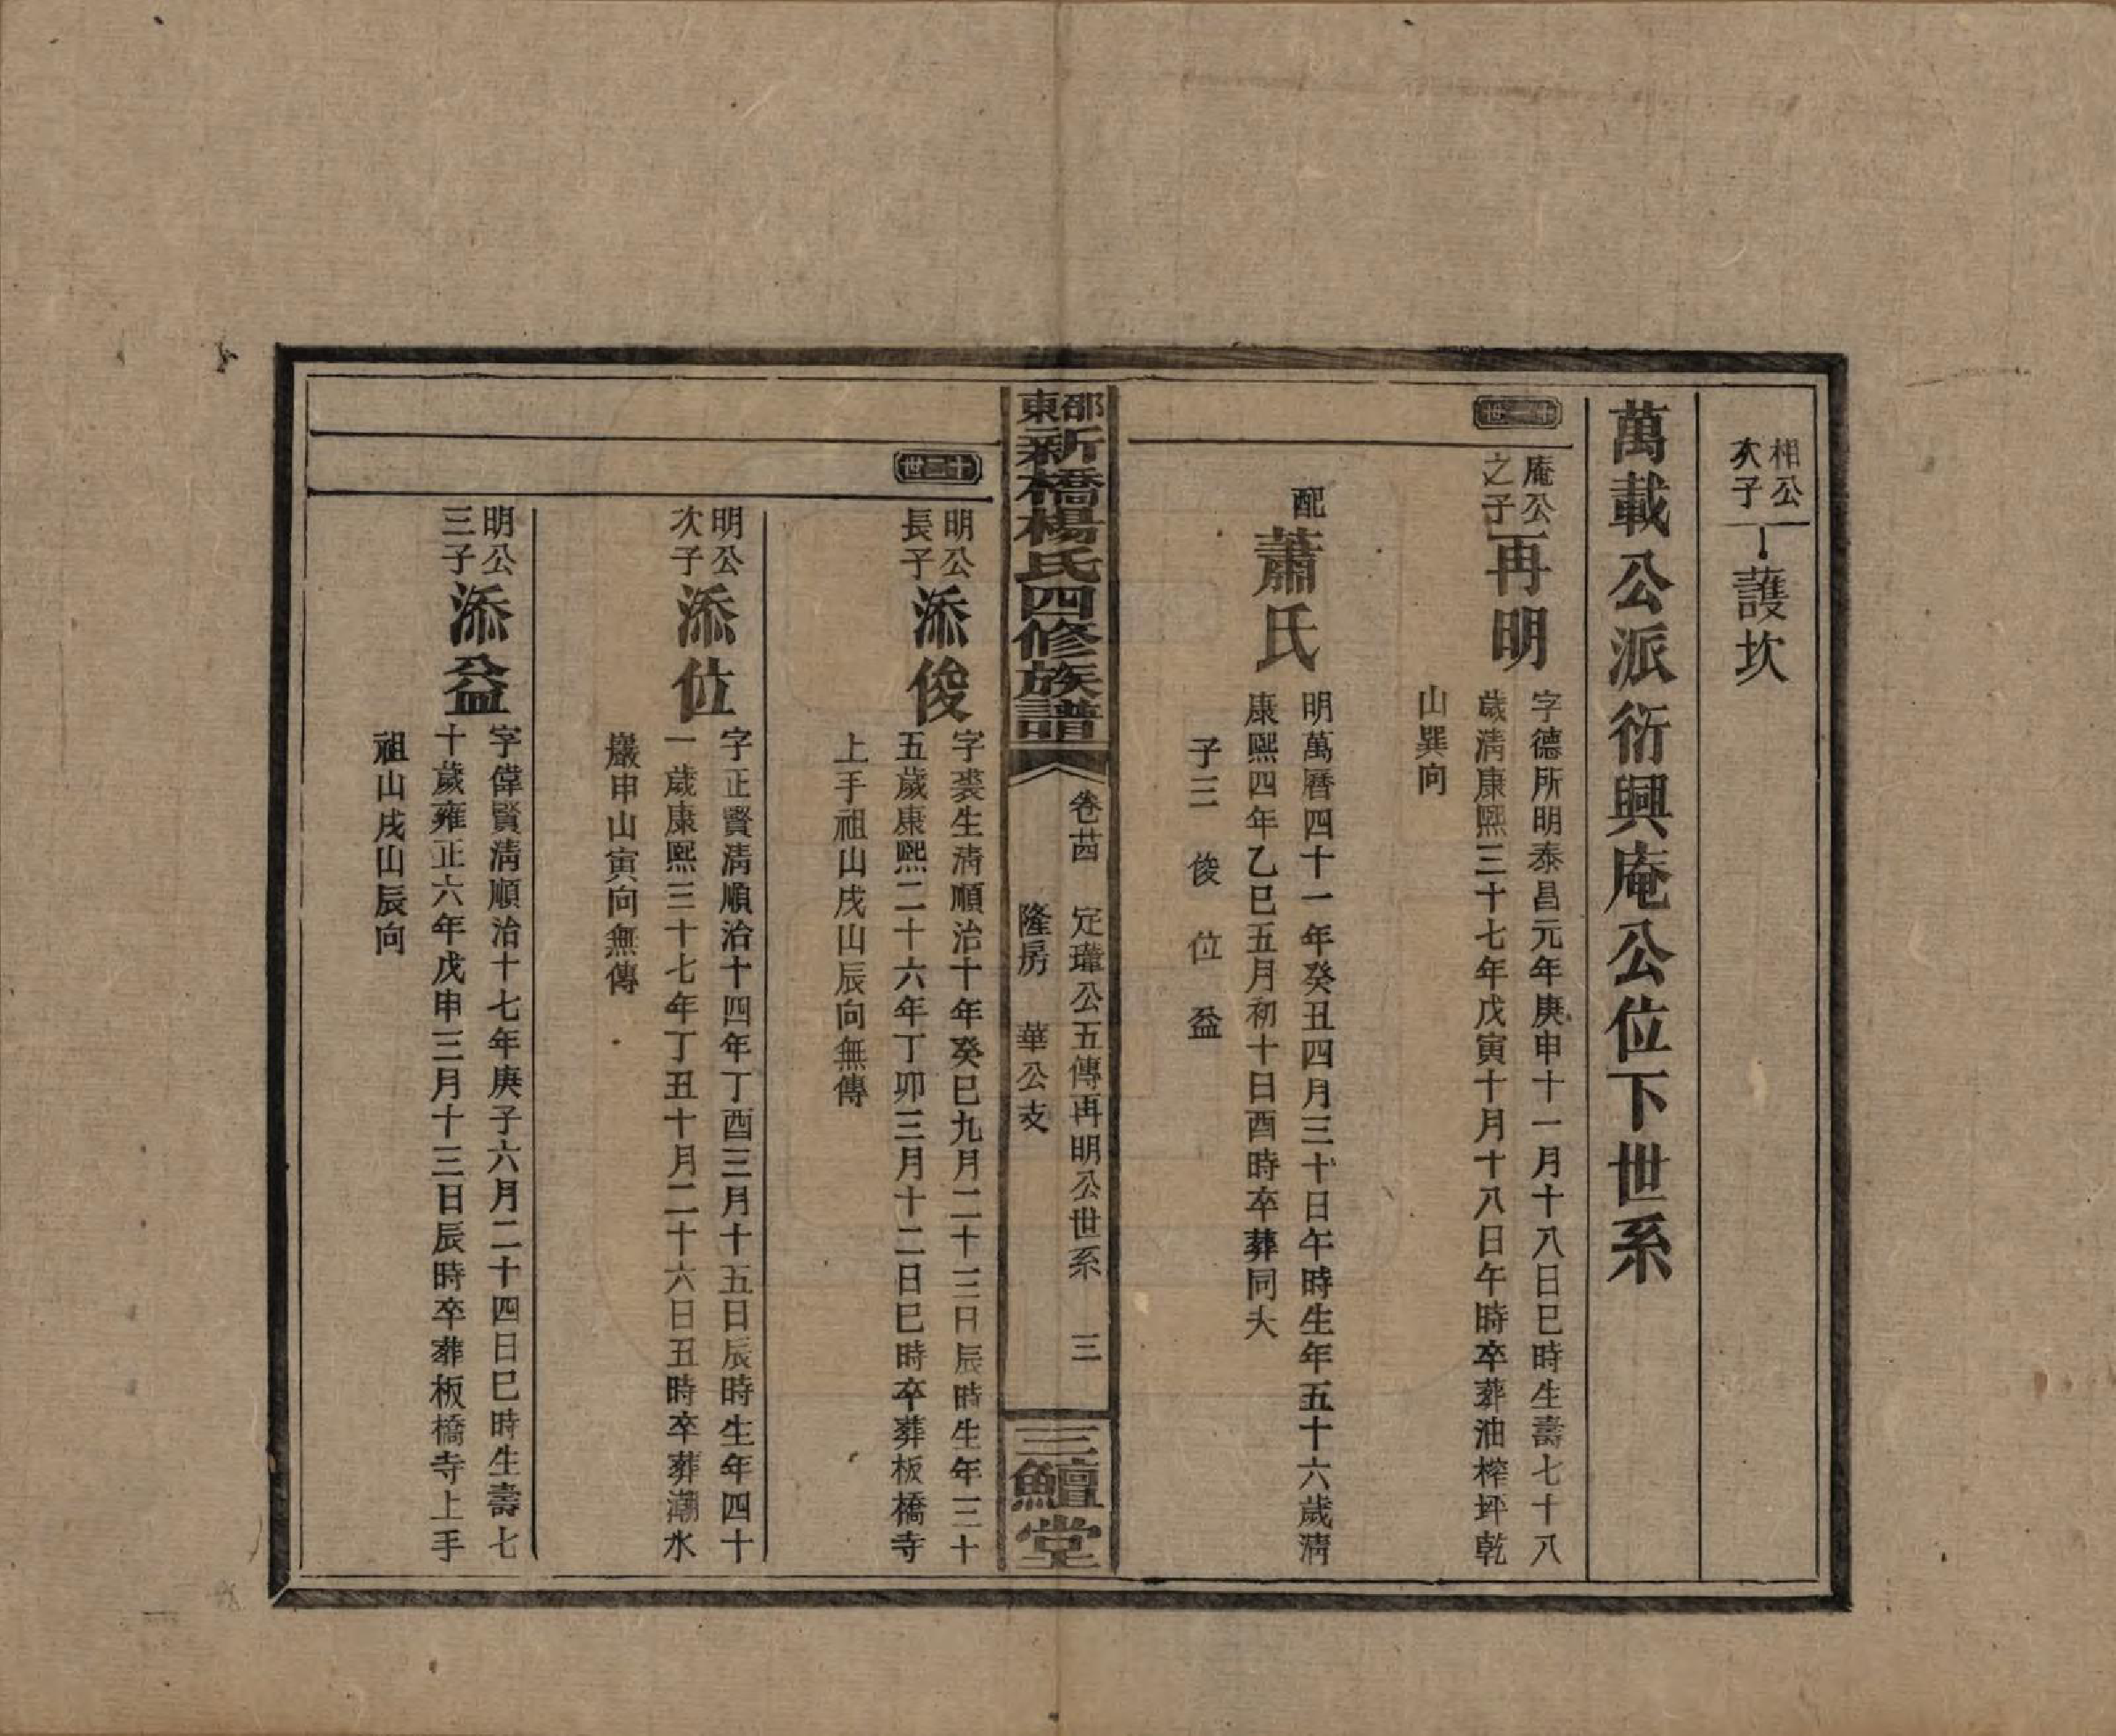 相公
次子
護坎
萬載公派衍興庵公位下世系
十二世
庵公
之子
再明
字德所明泰昌元年庚申十一月十八日巳時生壽七十八
歲清康熙三十七年戊寅十月十八日午時卒葬油榨坪乾
山巽向
配
蕭氏
明萬曆四十一年癸丑四月三十日午時生年五十六歲清
康熙四年乙巳五月初十日酉時卒葬同夫
子三 俊 位 益
邵東
新橋楊氏四修族譜
卷廿四 定瑋公五傳再明公世系 三
隆房 華公支
三鱣堂
十三世
明公
長子
添俊
字裘生清順治十年癸巳九月二十三日辰時生年三十
五歲康熙二十六年丁卯三月十二日巳時卒葬板橋寺
上手祖山戌山辰向無傳
明公
次子
添位
字正賢清順治十四年丁酉三月十五日辰時生年四十
一歲康熙三十七年丁丑十月二十六日丑時卒葬潮水
巖申山寅向無傳
明公
三子
添益
字偉賢清順治十七年庚子六月二十四日巳時生壽七
十歲雍正六年戊申三月十三日辰時卒葬板橋寺上手
祖山戌山辰向